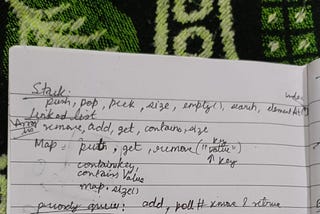 Stack:
push, pop, peek, size, empty(), search, elementAt(
linked list
Array list
remove, add, get, contains, size
Map put, get, remove("key
value")
↑ key
containskey,
contains Value
map.size()
priority queue: add, poll # remove &